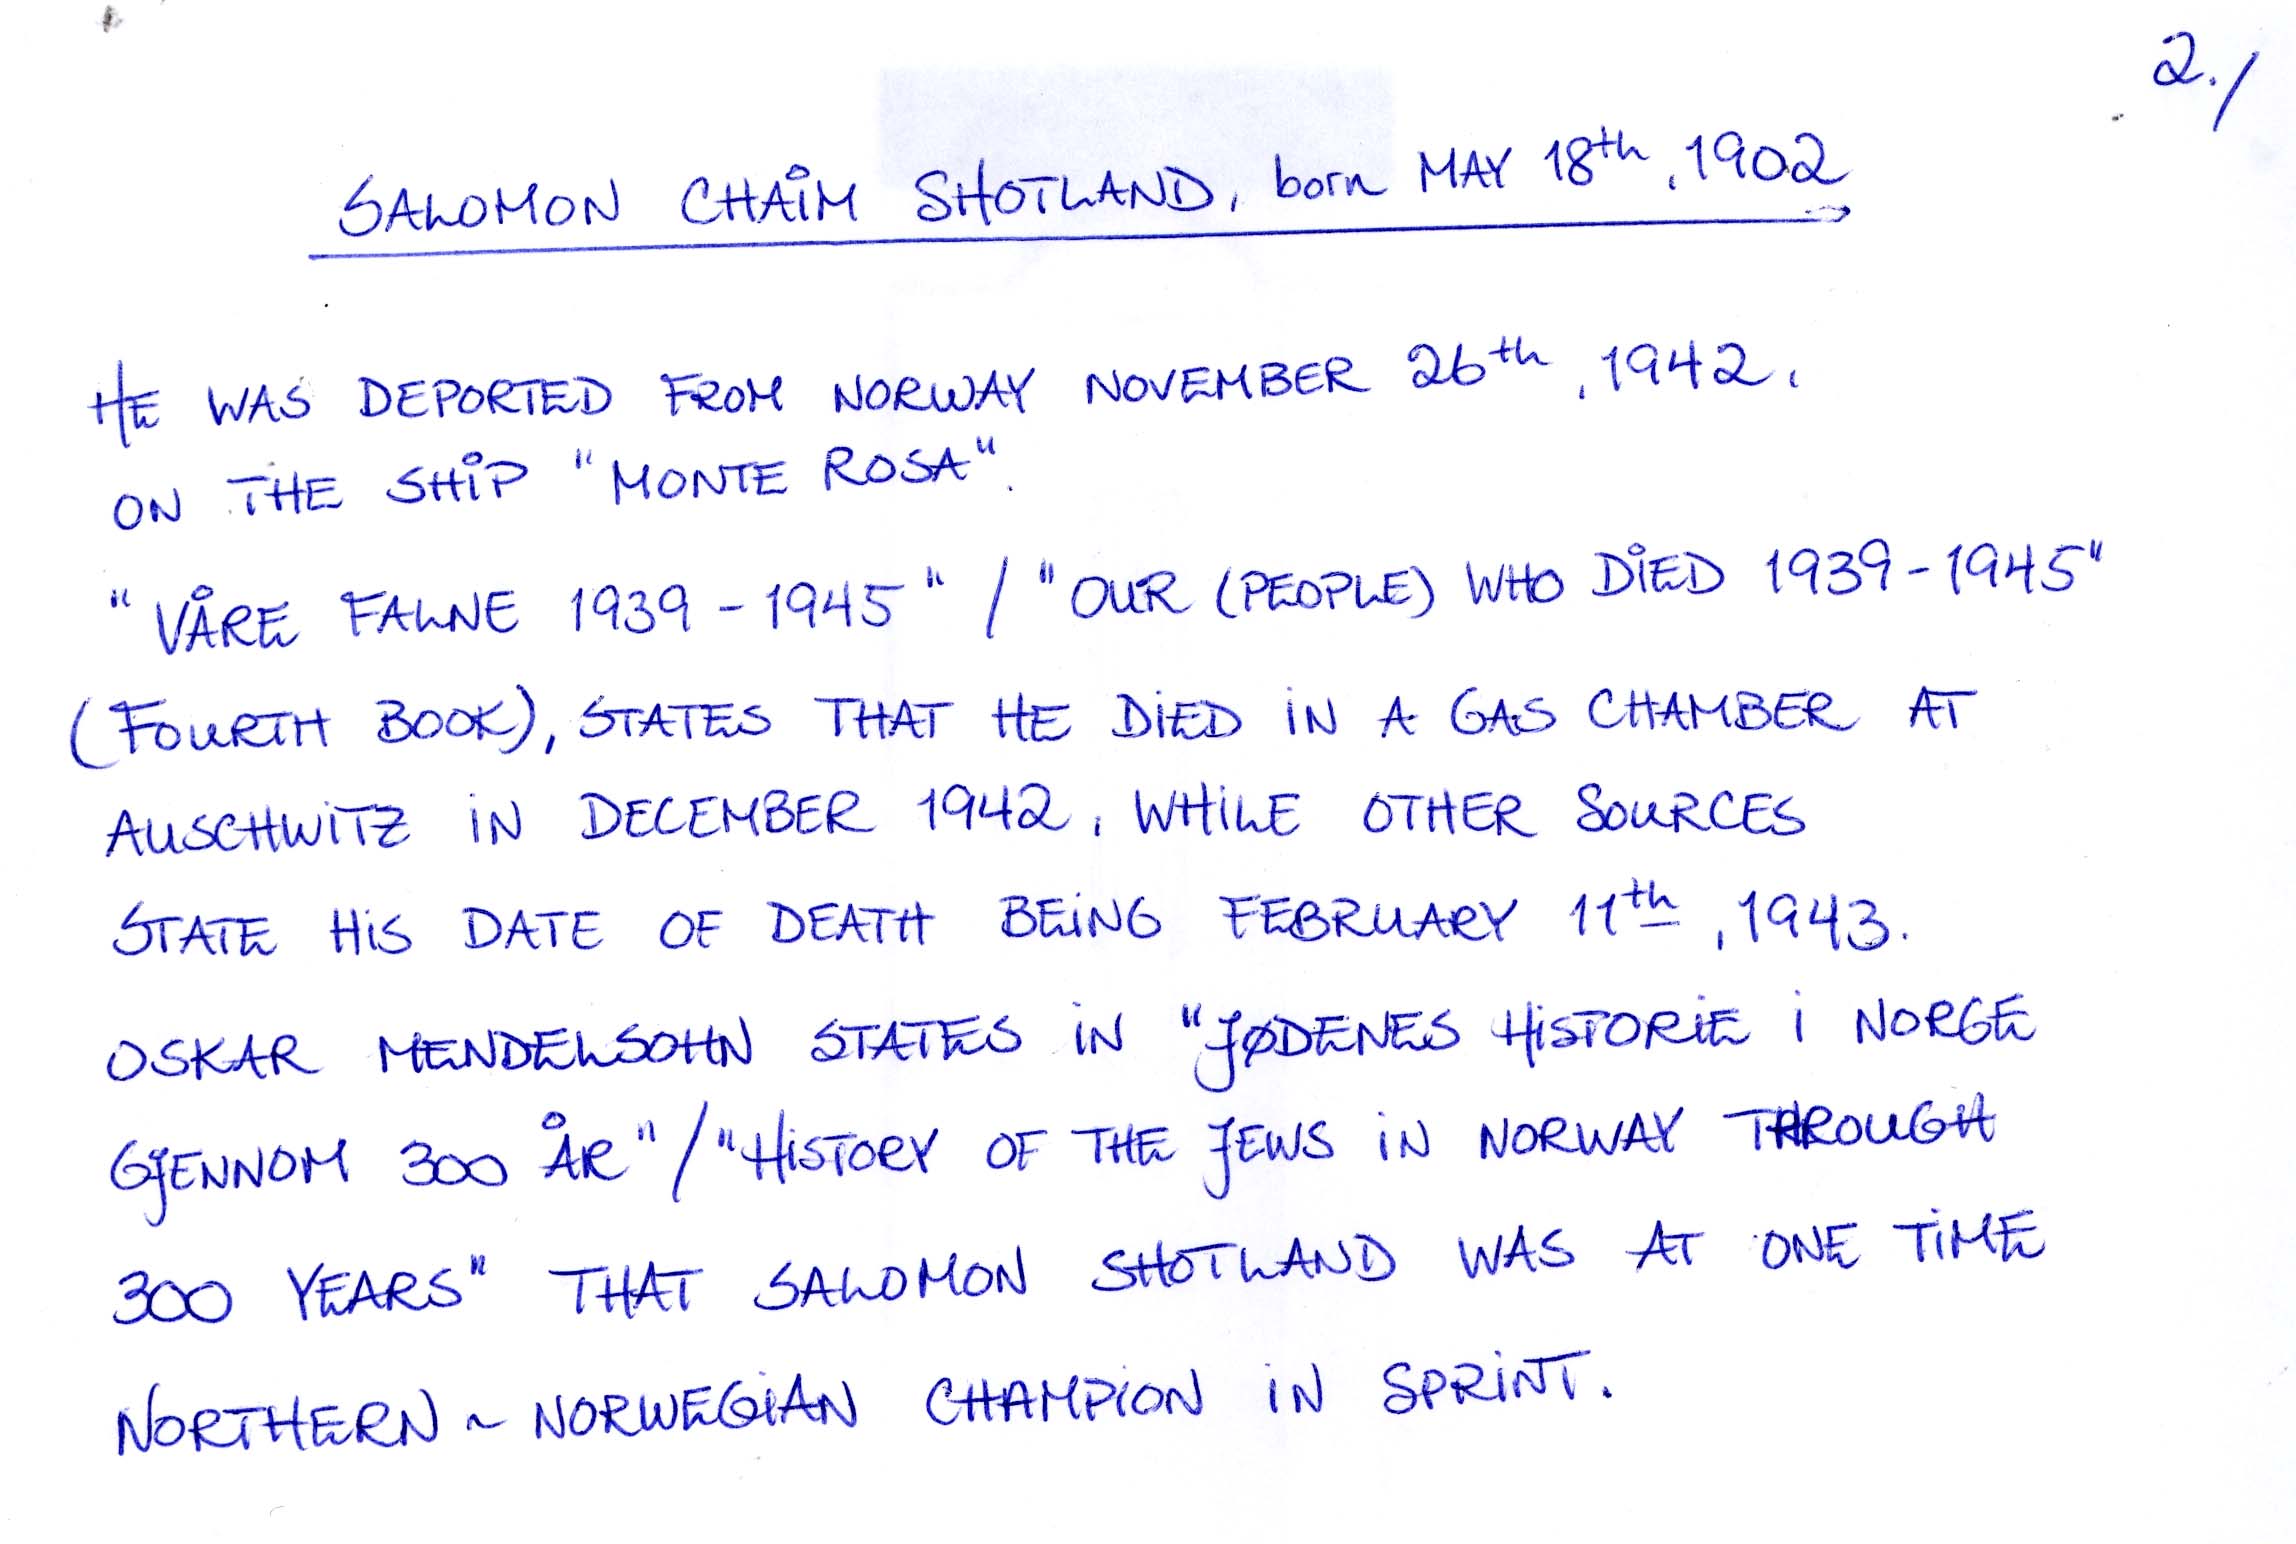 2./
SALOMON CHAIM SHOTLAND, born MAY 18th, 1902
HE WAS DEPORTED FROM NORWAY NOVEMBER 26th, 1942.
ON THE SHIP "MONTE ROSA".
"VÅRE FALNE 1939-1945" / "OUR (PEOPLE) WHO DIED 1939-1945"
(FOURTH BOOK), STATES THAT HE DIED IN A GAS CHAMBER AT
AUSCHWITZ IN DECEMBER 1942, WHILE OTHER SOURCES
STATE HIS DATE OF DEATH BEING FEBRUARY 11th, 1943.
OSKAR MENDELSOHN STATES IN "JØDENES HISTORIE I NORGE
GJENNOM 300 ÅR" / "HISTORY OF THE JEWS IN NORWAY THROUGH
300 YEARS" THAT SALOMON SHOTLAND WAS AT ONE TIME
NORTHERN~NORWEGIAN CHAMPION IN SPRINT.